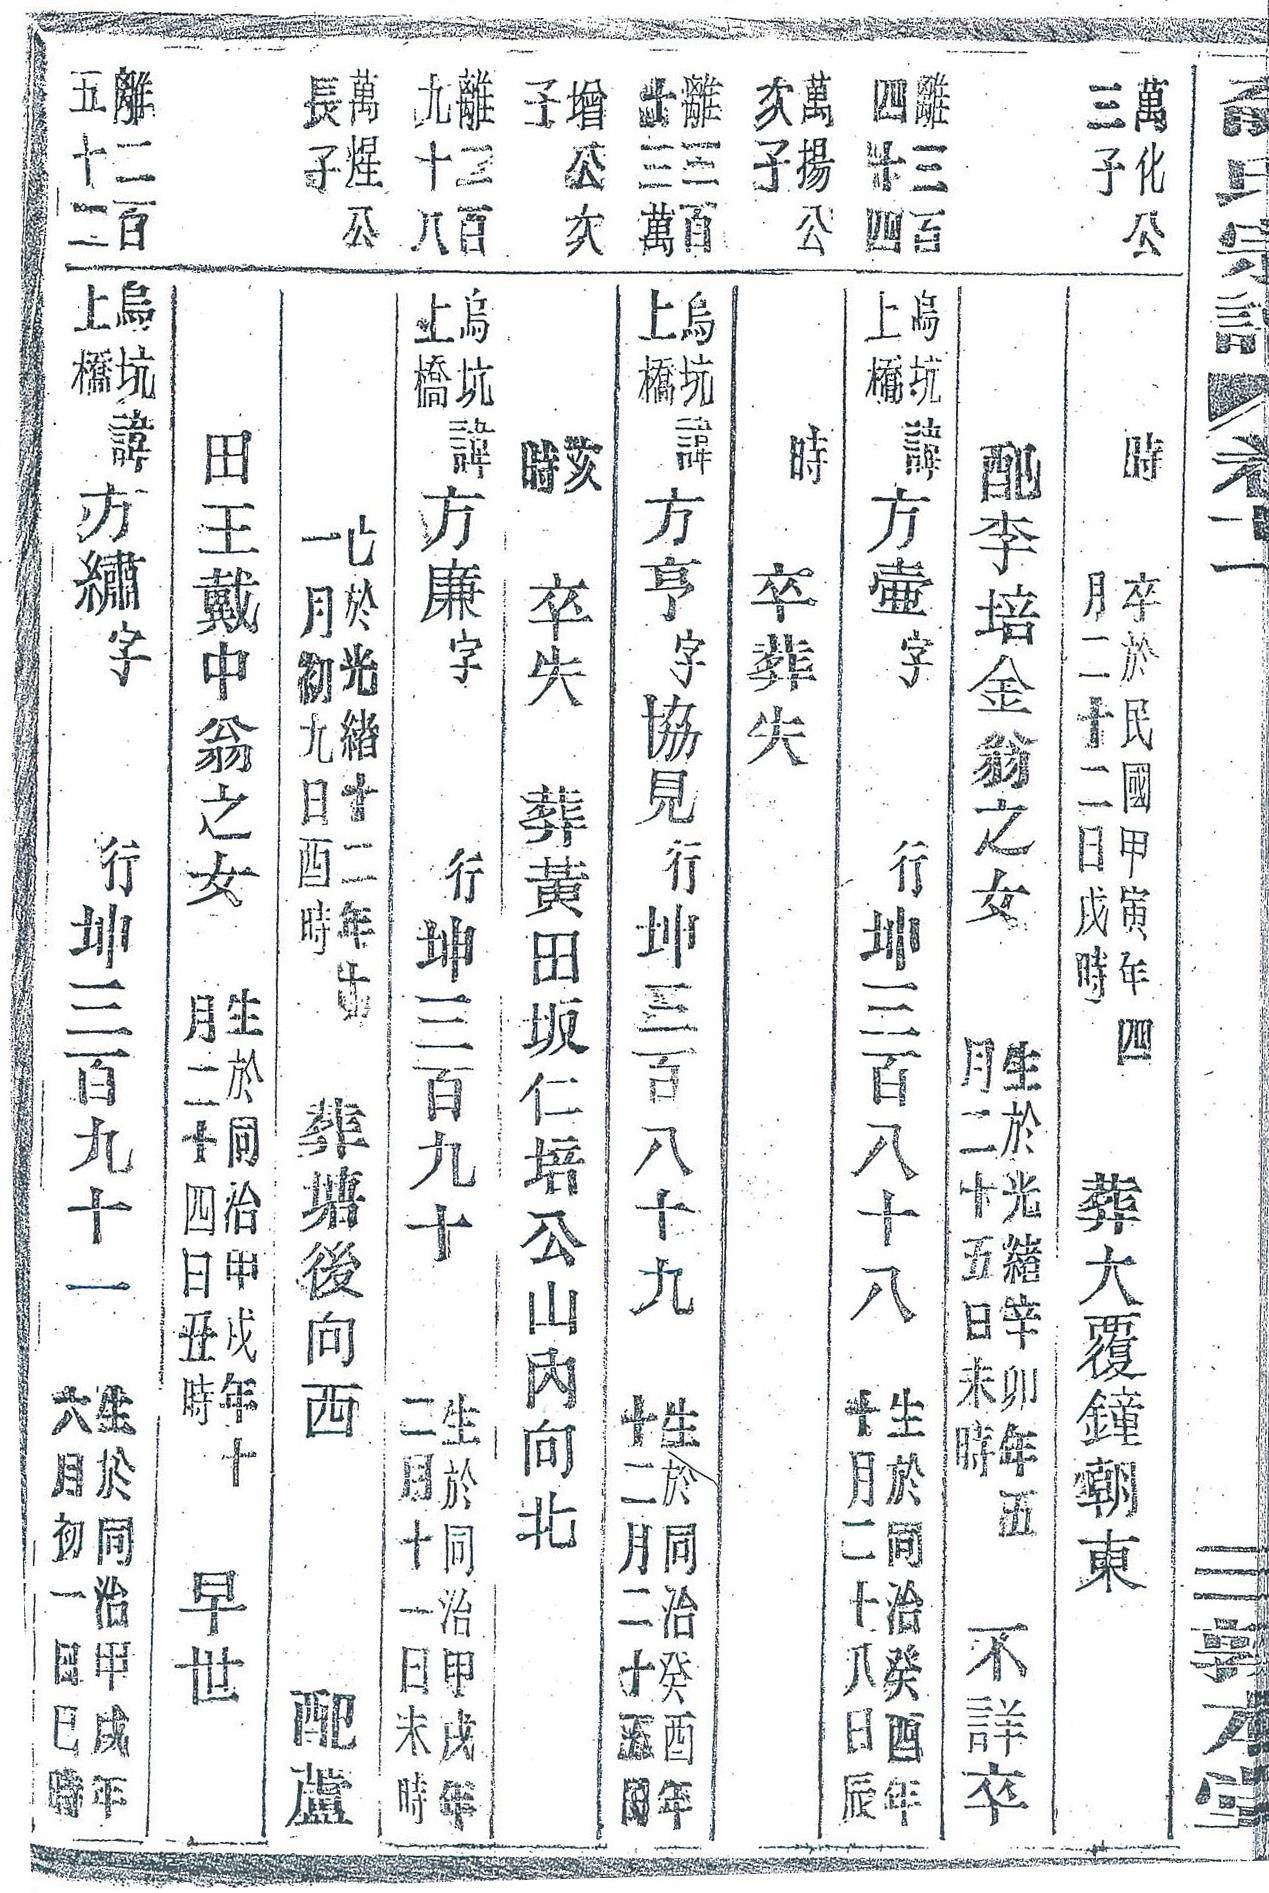 氏宗譜 卷十一 三 敦本堂
萬化公
三子
時 卒於民國甲寅年四
月二十二日戌時 葬大覆鐘朝東
配李培金翁之女 生於光緒辛卯年五
月二十五日未時 不詳卒
離三百
四十四
烏坑
上橋
諱方壺字 行坤三百八十八 生於同治癸酉年
十月二十八日辰
萬揚公
次子
時 卒葬失
離三百
十三萬
烏坑
上橋
諱方亨字協見行坤三百八十九 生於同治癸酉年
十二月二十五日
增公次
子
亥
時 卒失 葬黃田坂仁培公山內向北
離三百
九十八
烏坑
上橋
諱方廉字 行坤三百九十 生於同治甲戌年
二月十一日未時
萬煋公
長子
七於光緒十二年十
一月初九日酉時 葬塘後向西 配蘆
田王戴中翁之女 生於同治甲戌年十
月二十四日丑時 早世
離二百
五十二
烏坑
上橋
諱方繡字 行坤三百九十一 生於同治甲戌年
六月初一日巳時